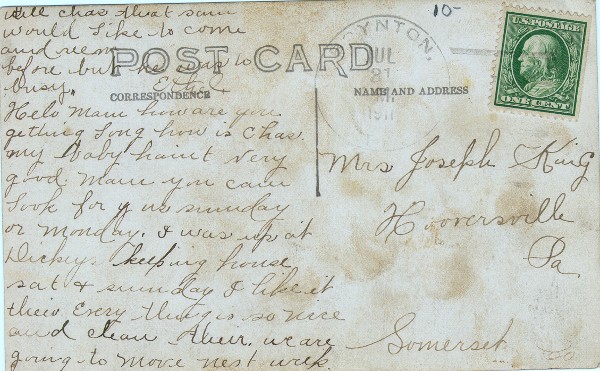 10-
U.S. POSTAGE
ONE CENT
OYNTON,
JUL
21
1911
POST CARD
CORRESPONDENCE
NAME AND ADDRESS
well chas that sam
would like to come
and
before but he was to
busy. E & C
Helo Mam how are you
gething Long how is Chas.
my baby haint very
good mam you can
look for us sunday
or monday. I was up at
Dickeys keeping house
sat & sunday I like it
their Every thing is so nice
and clean their. we are
going to move nest week.
Mrs Joseph King
Hooversville
Pa
Somerset